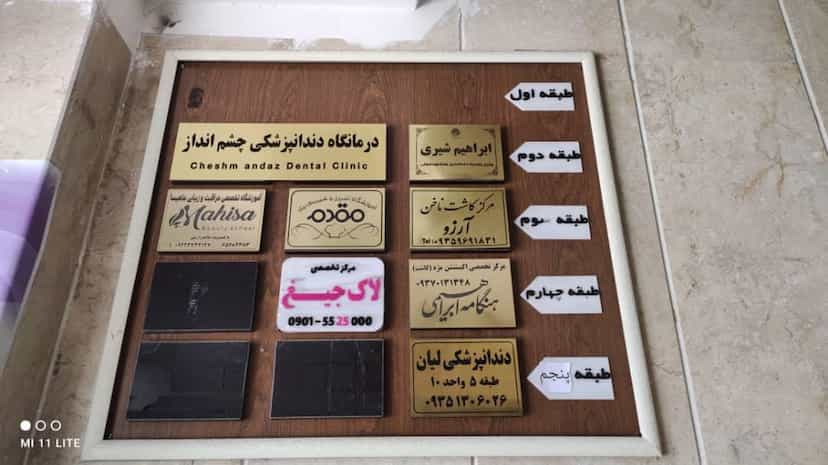 طبقه اول
ابراهیم شیری
درمانگاه دندانپزشکی چشم انداز
Cheshm andaz Dental Clinic
طبقه دوم
مرکز کاشت ناخن
آرزو
Tel: ۰۹۳۵۹۶۹۱۸۳۱
مقدم
آموزشگاه تخصصی مراقبت و زیبایی ماهیسا
Mahisa
Beauty School
طبقه سوم
مرکز تخصصی اکستنشن مژه (کاشت)
۰۹۳۷۰۱۳۱۳۴۸
هنگامه ابراهیمی
مرکز تخصصی
لاک جیغ
0901-55 25 000
طبقه چهارم
دندانپزشکی لیان
طبقه ۵ واحد ۱۰
۰۹۳۵۱۳۰۶۰۲۶
طبقه پنجم
MI 11 LITE